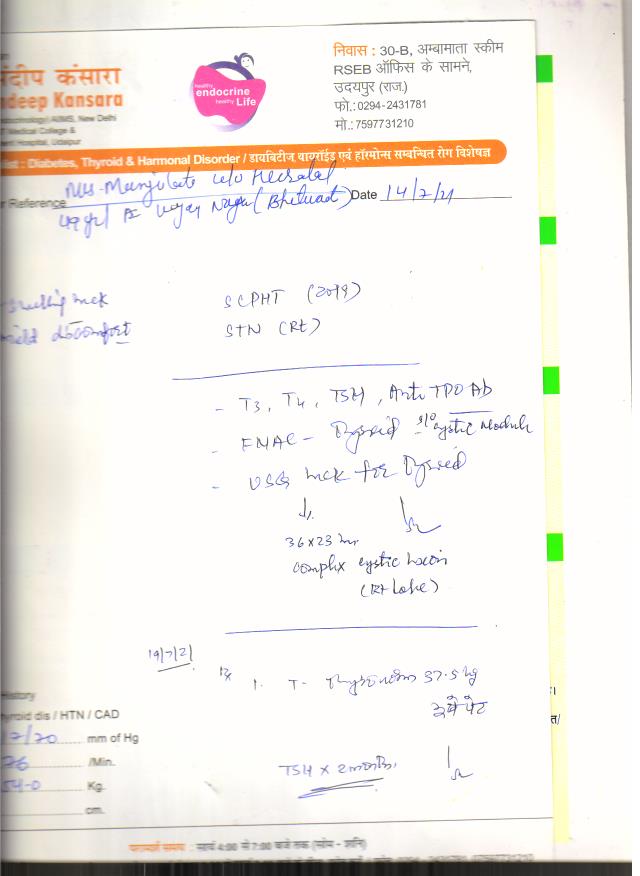 निवास : 30-B, अम्बामाता स्कीम
RSEB ऑफिस के सामने,
उदयपुर (राज.)
फो.:0294-2431781
मो.: 7597731210
ंदीप कंसारा
ndeep Kansara
AIIMS, New Delhi
Medical College &
Hospital, Udaipur
healthy
endocrine
healthy Life
list : Diabetes, Thyroid & Harmonal Disorder / डायबिटीज थायरॉईड एवं हॉरमोन्स सम्बन्धित रोग विशेषज्ञ
r Reference
Date 14/7/21
Vijay Nagar (Bhilwad)
swelling neck
mild discomfort
SCPHT (2019)
STN (Rt)
- T3, T4, TSH, Anti TPO Ab
- FNAC - Thyroid s/o cystic Nodule
- USG neck for Thyroid
36 x 23 mm
complex cystic lesion
(Rt Lobe)
19/7/21
Rx 1. T-
TSH x 2 months
History
hyroid dis / HTN / CAD
/70 mm of Hg
76 /Min.
54-0 Kg.
cm.
परामर्श समय : सायं 4:00 से 7:00 बजे तक (सोम - शनि)